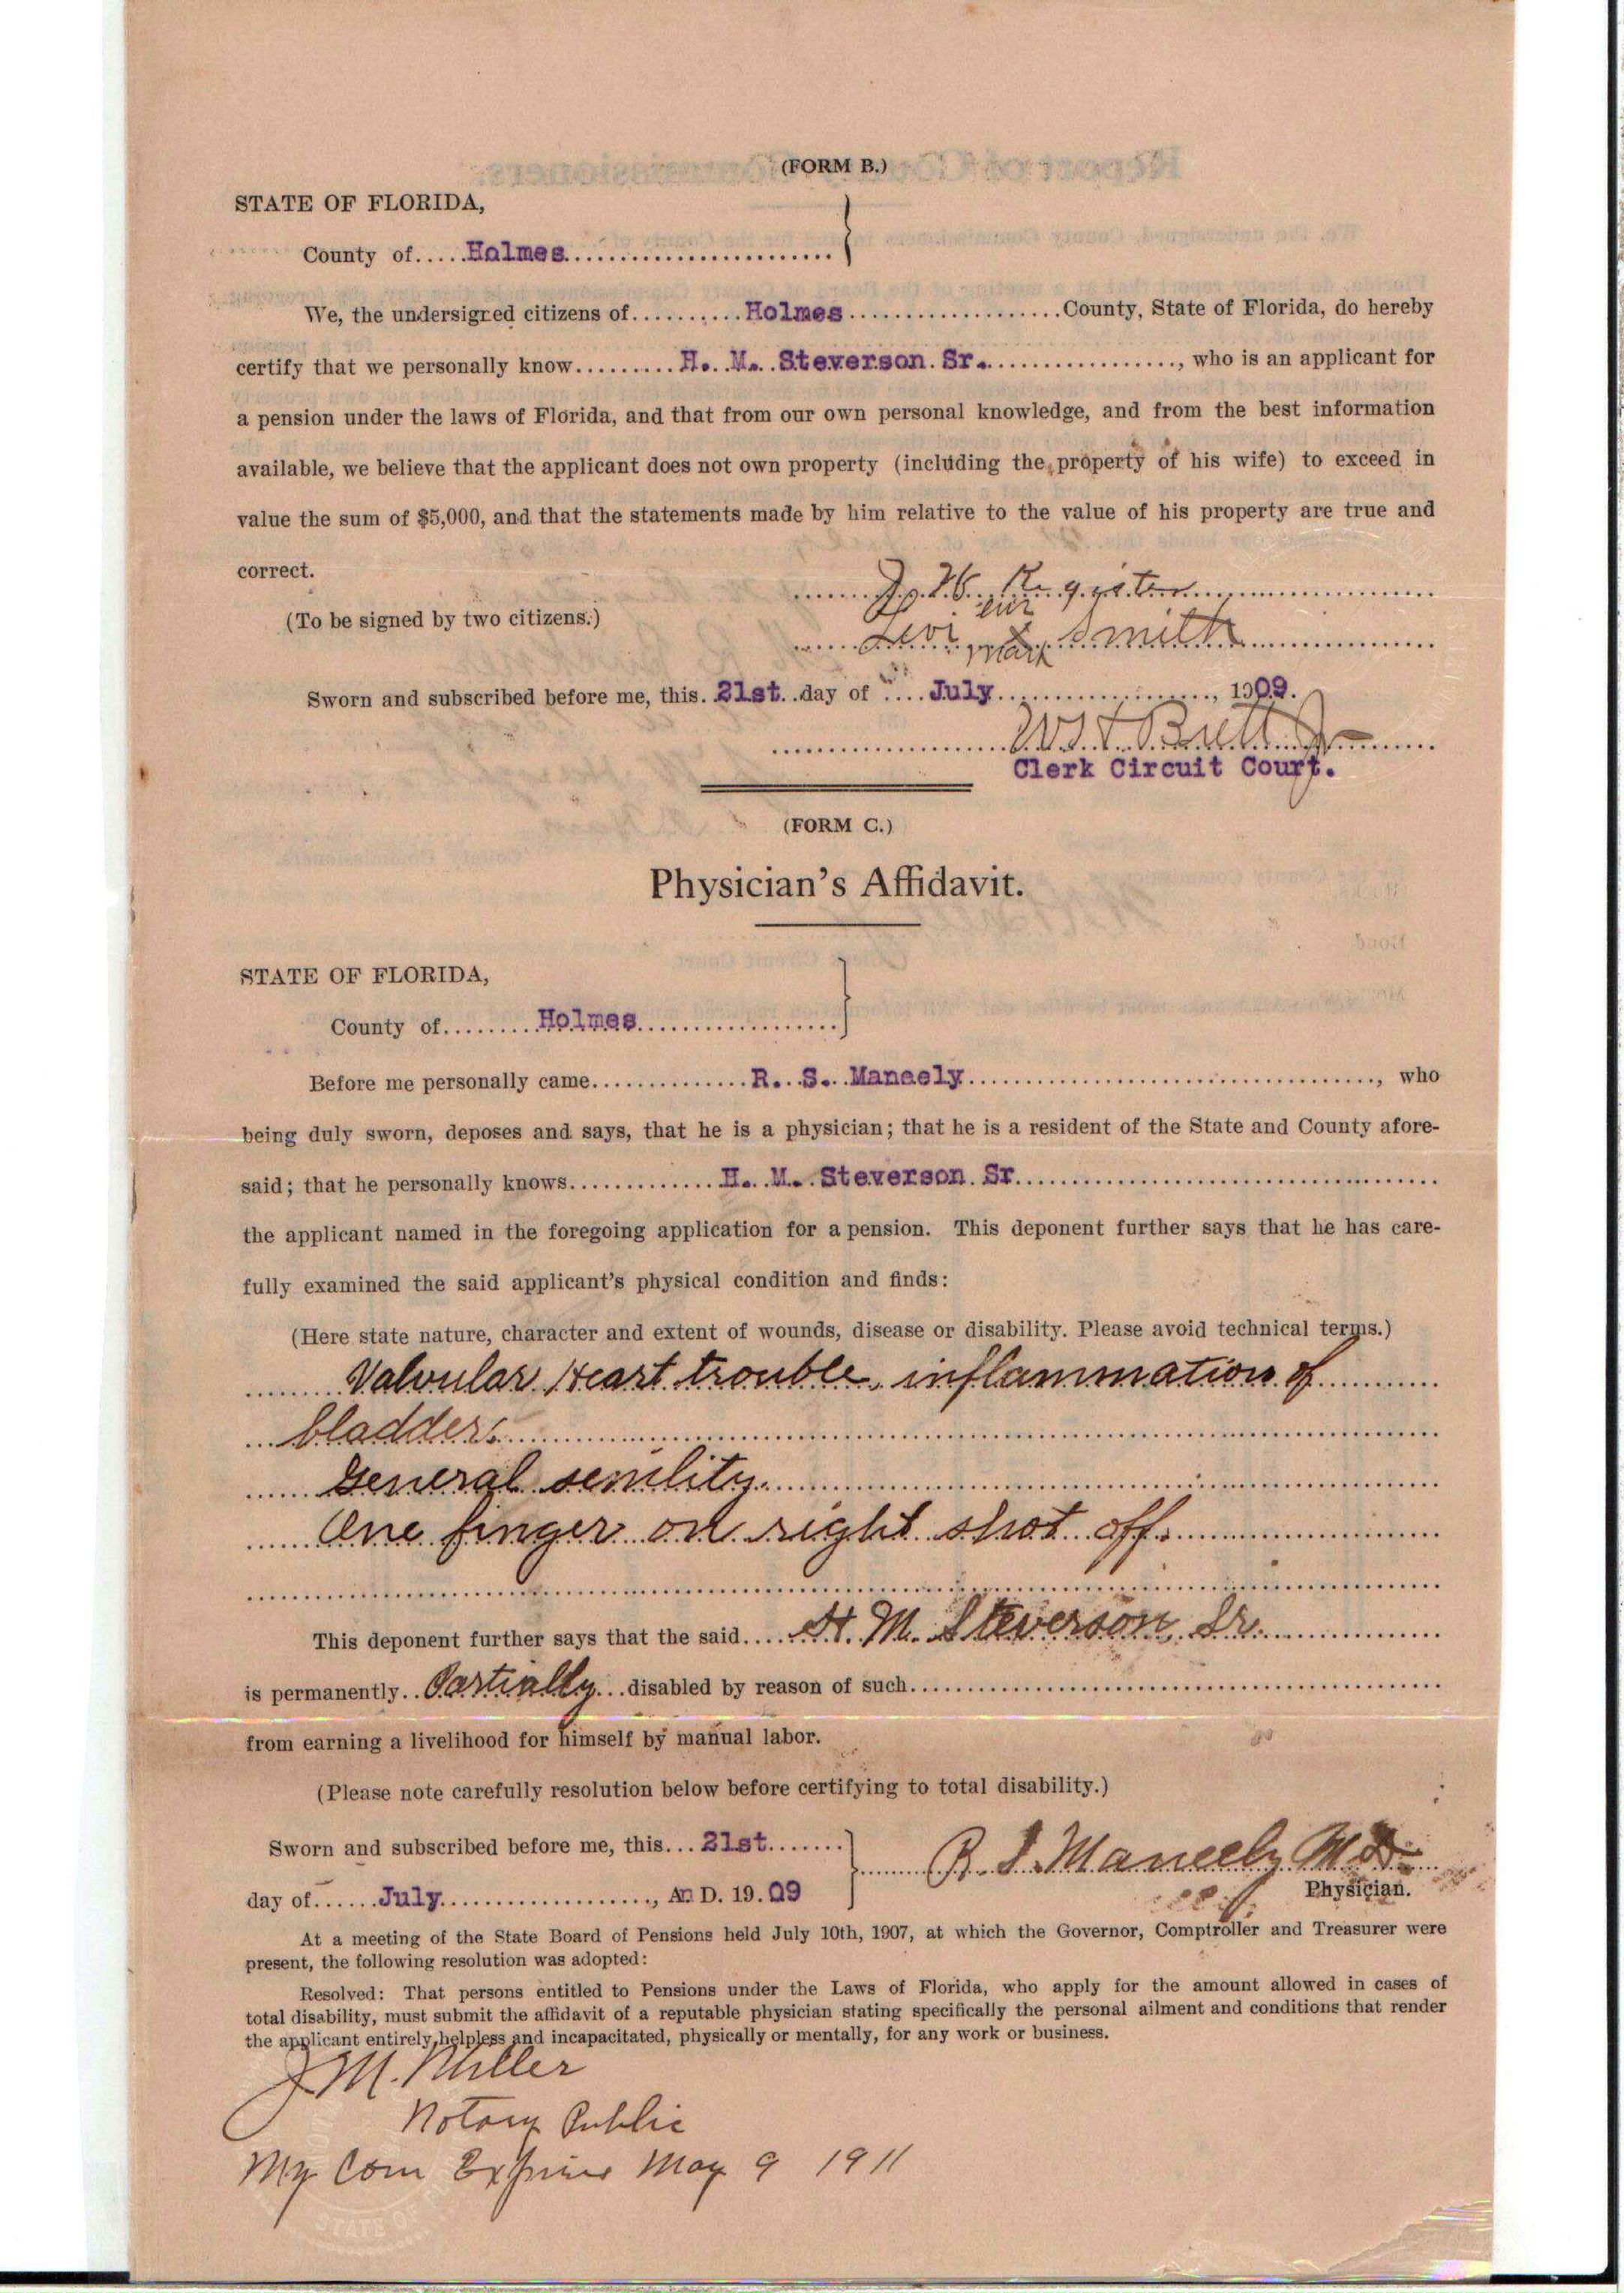 (FORM B.)
STATE OF FLORIDA,
County of.....Holmes........................
We, the undersigned citizens of..........Holmes....................County, State of Florida, do hereby
certify that we personally know..........H. M. Steverson Sr..................., who is an applicant for
a pension under the laws of Florida, and that from our own personal knowledge, and from the best information
available, we believe that the applicant does not own property (including the property of his wife) to exceed in
value the sum of $5,000, and that the statements made by him relative to the value of his property are true and
correct.
J. W. Register
(To be signed by two citizens.)
Levi his x mark Smith
Sworn and subscribed before me, this. 21st. day of .... July...................., 1909.
Clerk Circuit Court.
(FORM C.)
Physician's Affidavit.
STATE OF FLORIDA,
County of.........Holmes...................
Before me personally came...............R. S. Maneely......................................, who
being duly sworn, deposes and says, that he is a physician; that he is a resident of the State and County afore-
said; that he personally knows..............H. M. Steverson Sr.......................................
the applicant named in the foregoing application for a pension. This deponent further says that he has care-
fully examined the said applicant's physical condition and finds:
(Here state nature, character and extent of wounds, disease or disability. Please avoid technical terms.)
Valvular Heart trouble, inflammation of
bladder.
General senility.
One finger on right shot off.
This deponent further says that the said.... H. M. Steverson, Sr.
is permanently.. Partially...disabled by reason of such..................................................
from earning a livelihood for himself by manual labor.
(Please note carefully resolution below before certifying to total disability.)
Sworn and subscribed before me, this...21st.......
R. S. Maneely M D
day of......July...................., A. D. 19.09
Physician.
At a meeting of the State Board of Pensions held July 10th, 1907, at which the Governor, Comptroller and Treasurer were
present, the following resolution was adopted:
Resolved: That persons entitled to Pensions under the Laws of Florida, who apply for the amount allowed in cases of
total disability, must submit the affidavit of a reputable physician stating specifically the personal ailment and conditions that render
the applicant entirely helpless and incapacitated, physically or mentally, for any work or business.
J M. Miller
Notary Public
My Com Expires May 9 1911
STATE OF